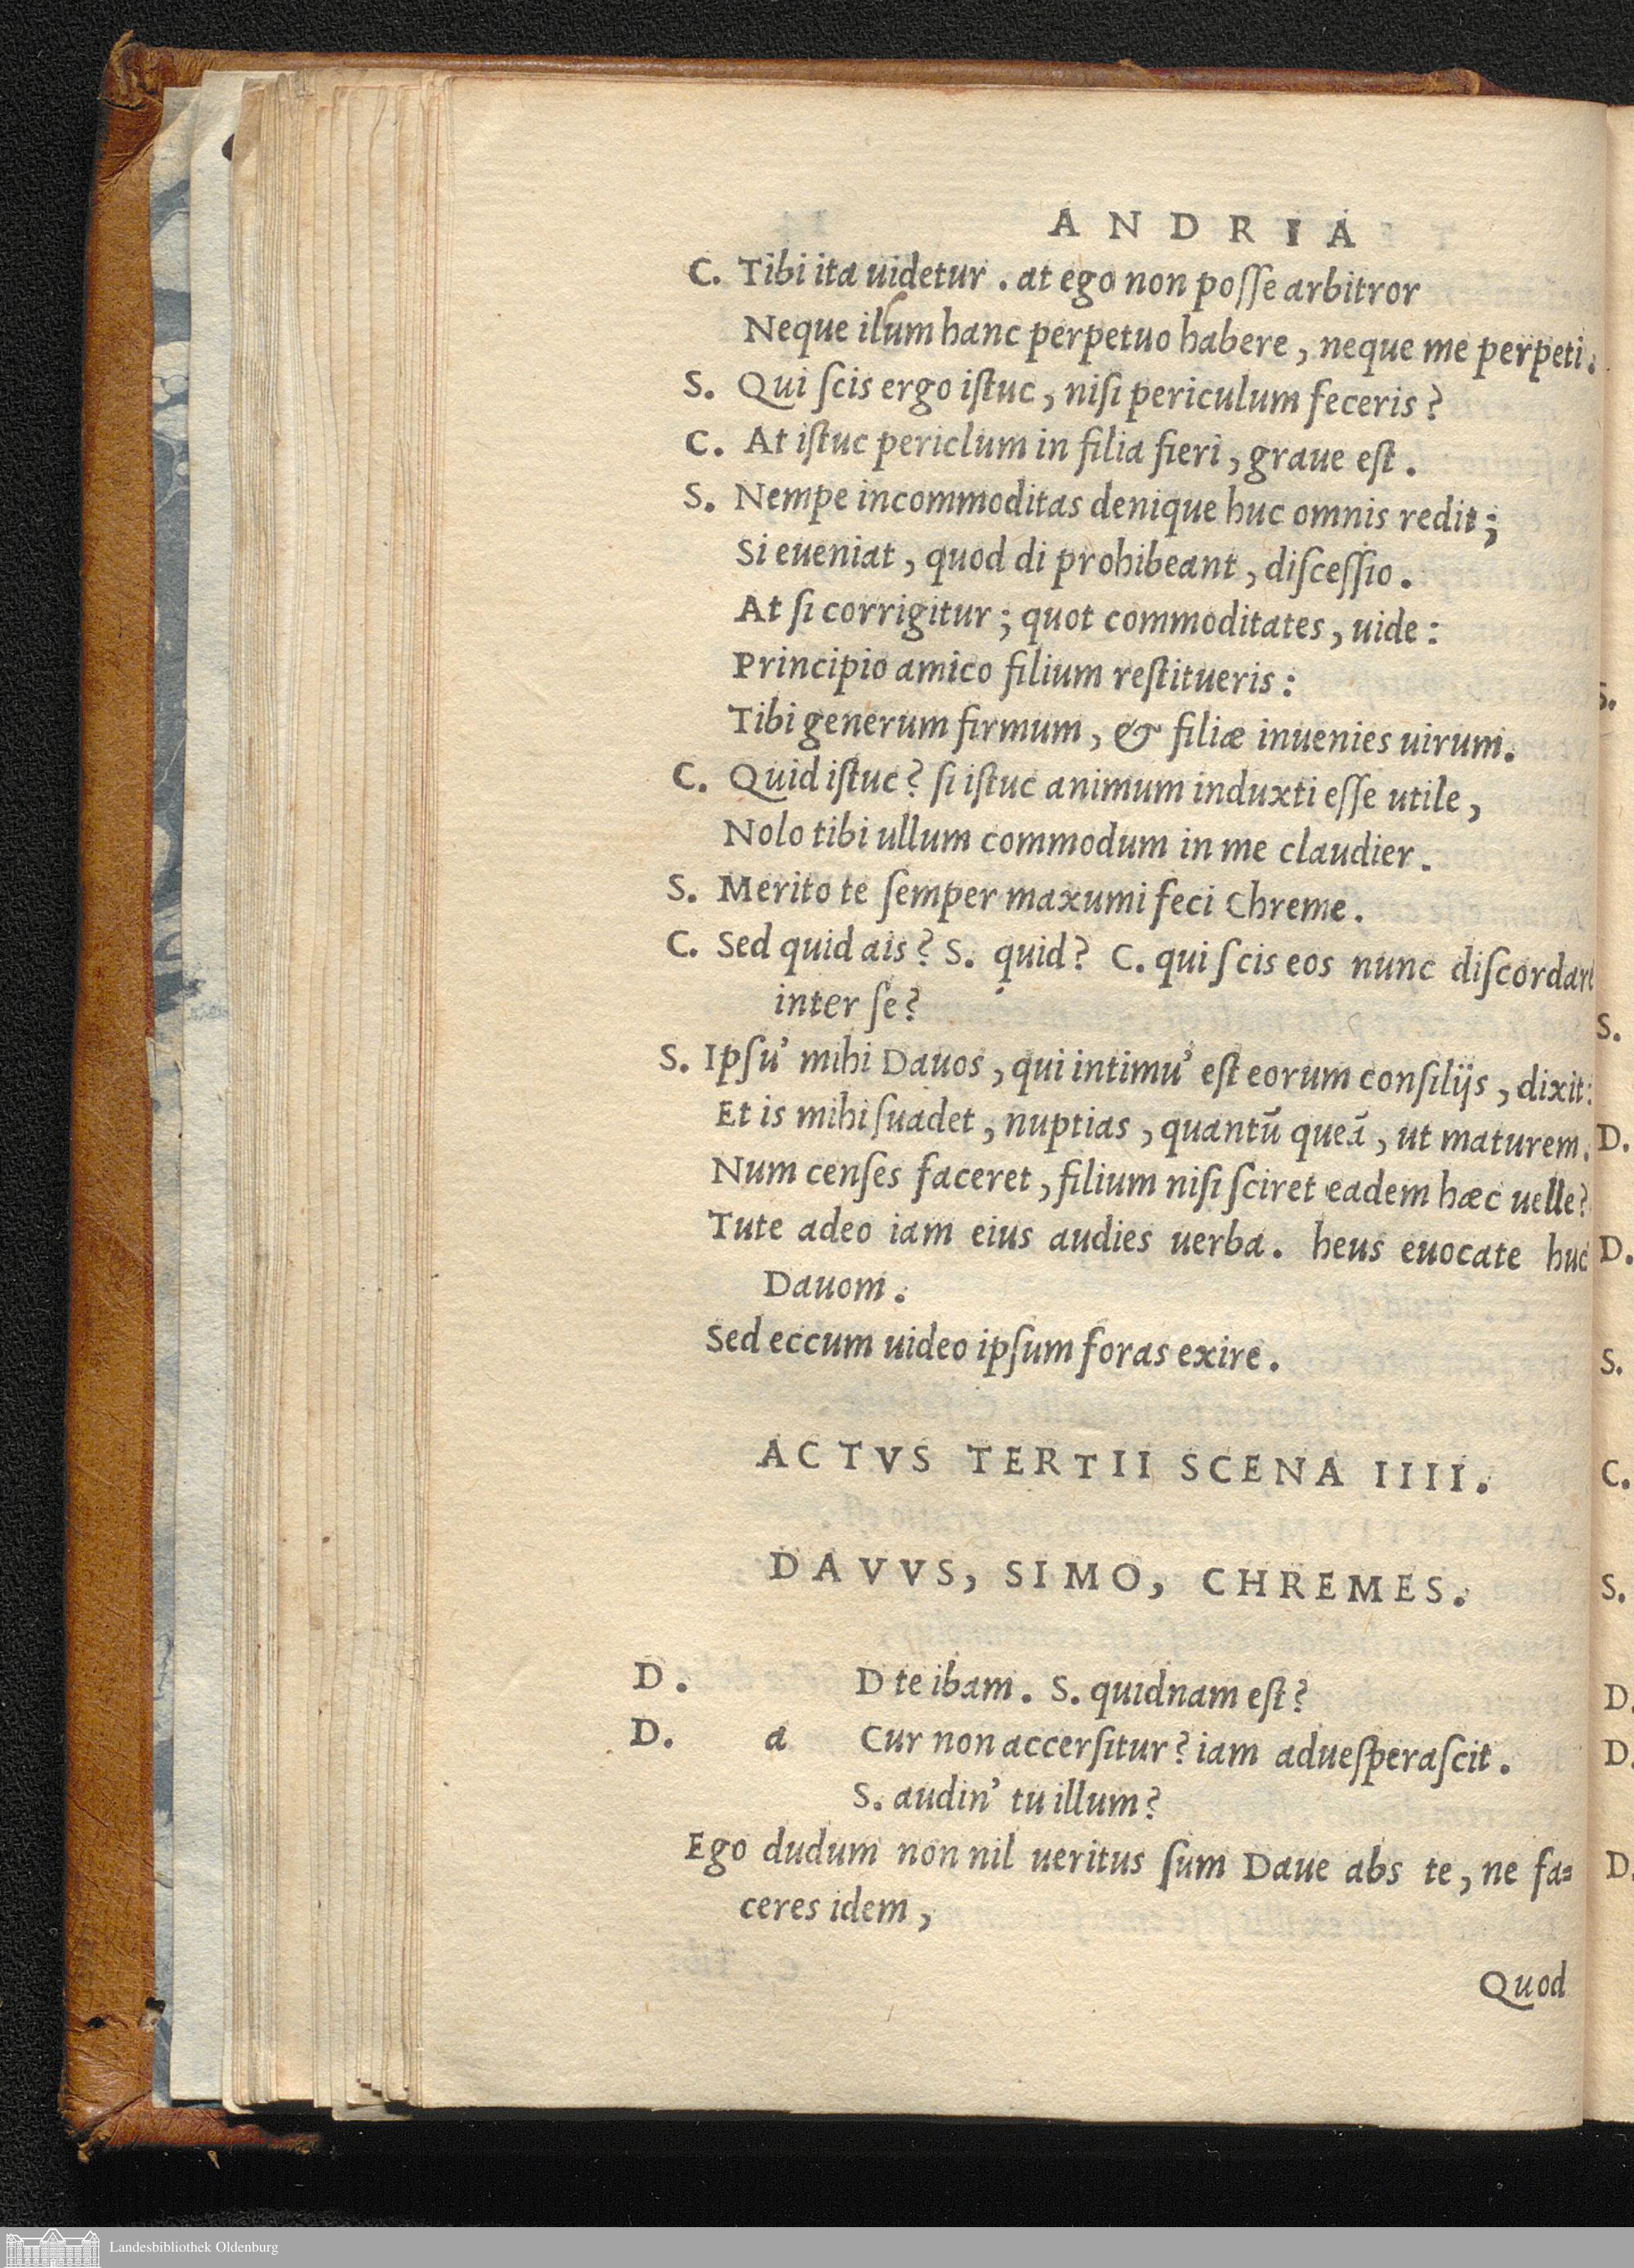 ANDRIA
C. Tibi ita uidetur. at ego non poſſe arbitror
Neque ilum hanc perpetuo habere, neque me perpeti.
S. Qui ſcis ergo iſtuc, niſi periculum feceris?
C. At iſtuc periclum in filia fieri, graue eſt.
S. Nempe incommoditas denique huc omnis redit;
Si eueniat, quod di prohibeant, diſceſſio.
At ſi corrigitur; quot commoditates, uide:
Principio amico filium reſtitueris:
Tibi generum firmum, & filiæ inuenies uirum.
C. Quid iſtuc? ſi iſtuc animum induxti eſſe utile,
Nolo tibi ullum commodum in me claudier.
S. Merito te ſemper maxumi feci Chreme.
C. Sed quid ais? S. quid? C. qui ſcis eos nunc diſcordare
inter ſe?
S. Ipſu' mihi Dauos, qui intimu' eſt eorum conſilijs, dixit:
Et is mihi ſuadet, nuptias, quantū queā, ut maturem.
Num cenſes faceret, filium niſi ſciret eadem hæc uelle?
Tute adeo iam eius audies uerba. heus euocate huc
Dauom.
Sed eccum uideo ipſum foras exire.
ACTVS TERTII SCENA IIII.
DAVVS, SIMO, CHREMES.
D. D te ibam. S. quidnam eſt?
D. a Cur non accerſitur? iam adueſperaſcit.
S. audin' tu illum?
Ego dudum non nil ueritus ſum Daue abs te, ne fa=
ceres idem,
Quod
S.
S.
D.
D.
S.
C.
S.
D.
D.
D.
Landesbibliothek Oldenburg